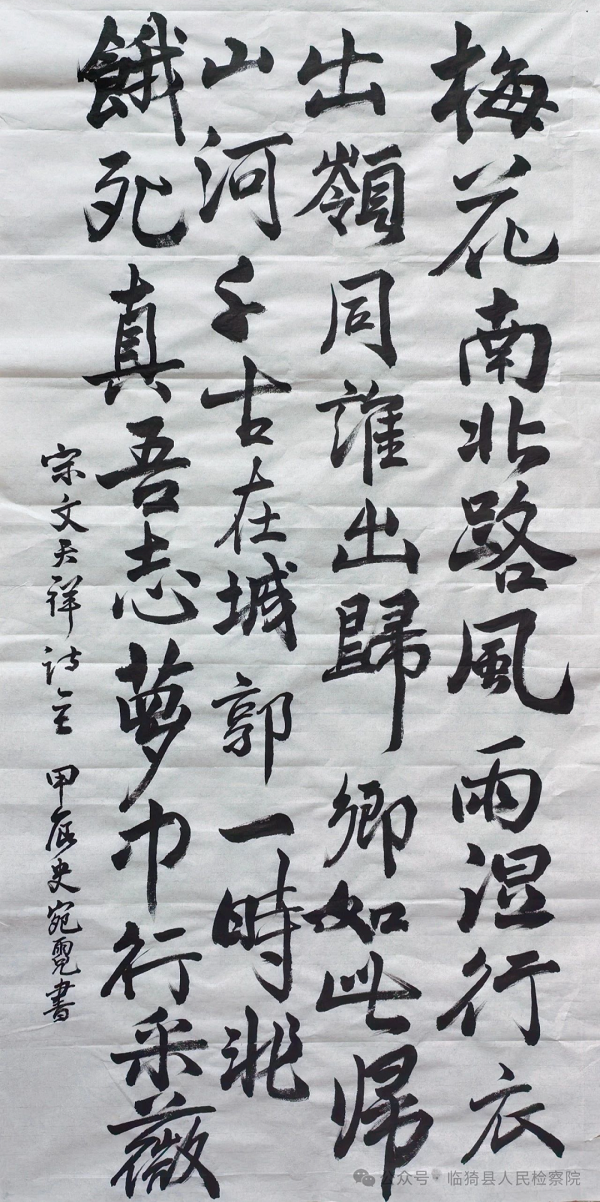 梅花南北路風雨湿行衣
出嶺同誰出歸鄉如此帰
山河千古在城郭一時非
餓死真吾志夢中行采薇
宋文天祥诗 甲辰史宛霓書
公众号 · 临猗县人民检察院